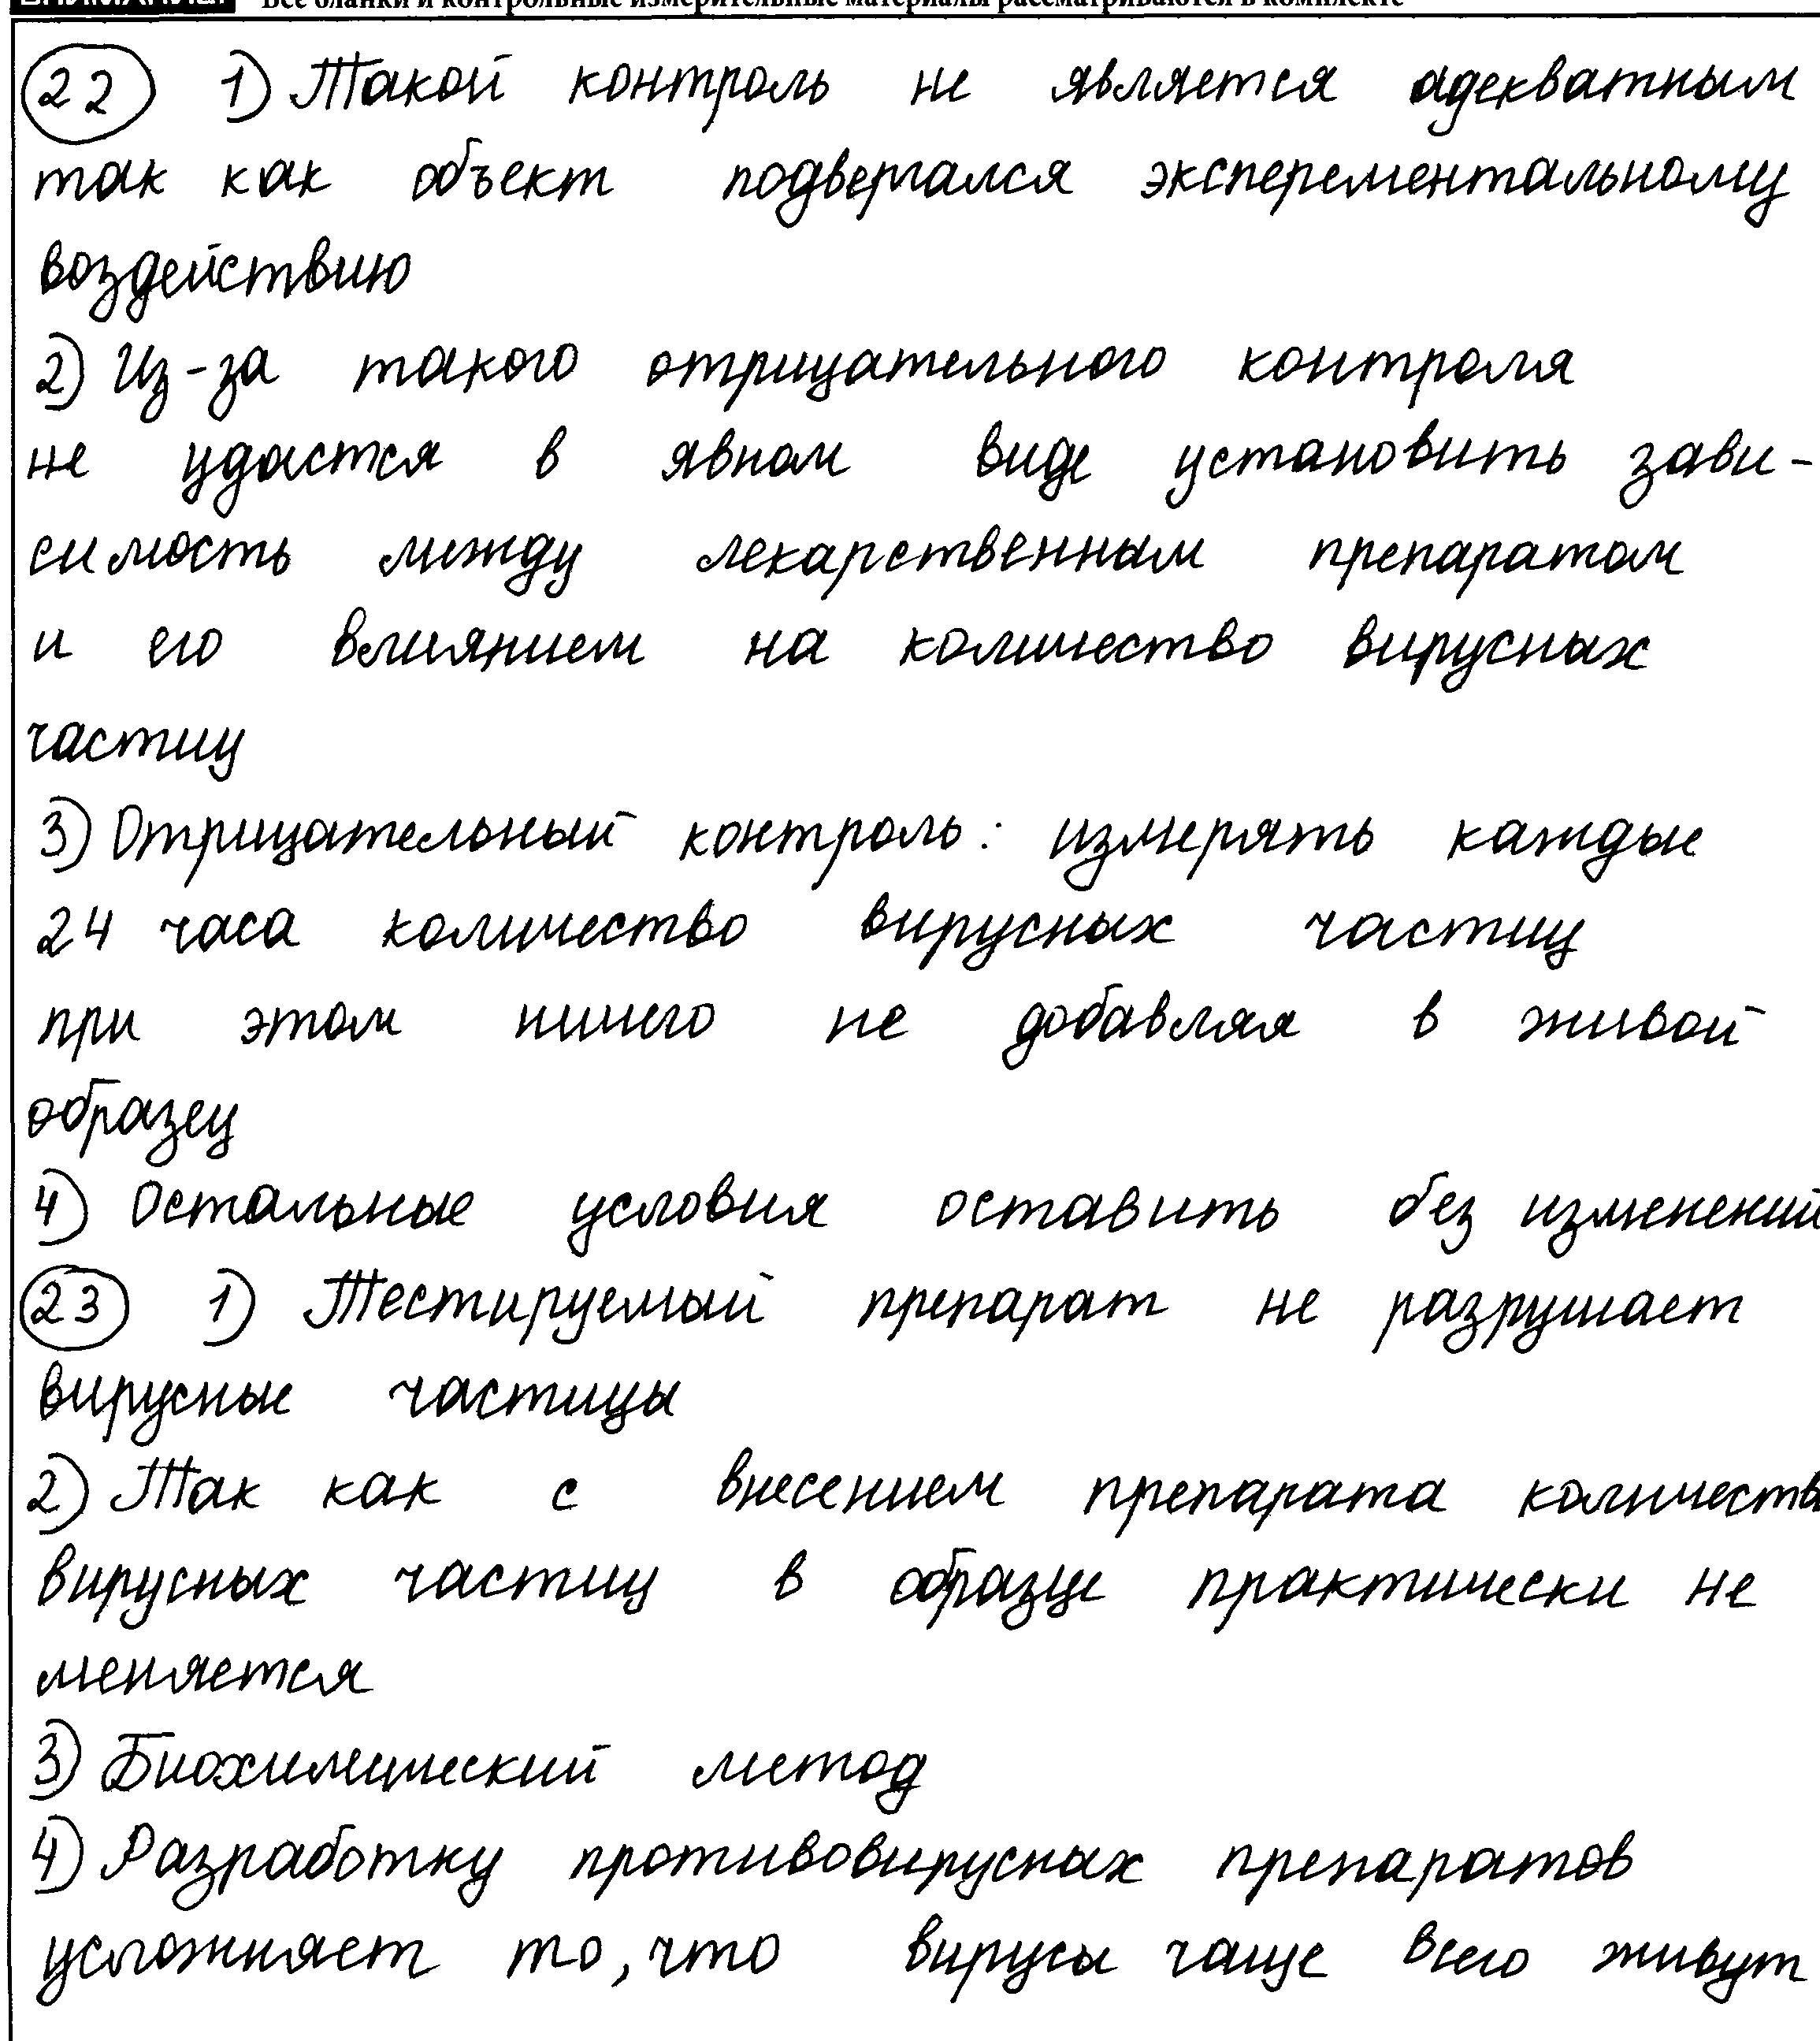 Все бланки и контрольные измерительные материалы рассматриваются в комплекте
22 1) Такой контроль не является адекватным
так как объект подвергался эксперементальному
воздействию
2) Из-за такого отрицательного контроля
не удастся в явном виде установить зави-
симость между лекарственным препаратом
и его влиянием на количество вирусных
частиц
3) Отрицательный контроль: измерять каждые
24 часа количество вирусных частиц
при этом ничего не добавляя в живой
образец
4) Остальные условия оставить без изменений
23 1) Тестируемый препарат не разрушает
вирусные частицы
2) Так как с внесением препарата количеств
вирусных частиц в образце практически не
меняется
3) Биохимический метод
4) Разработку противовирусных препаратов
усложняет то, что вирусы чаще всего живут